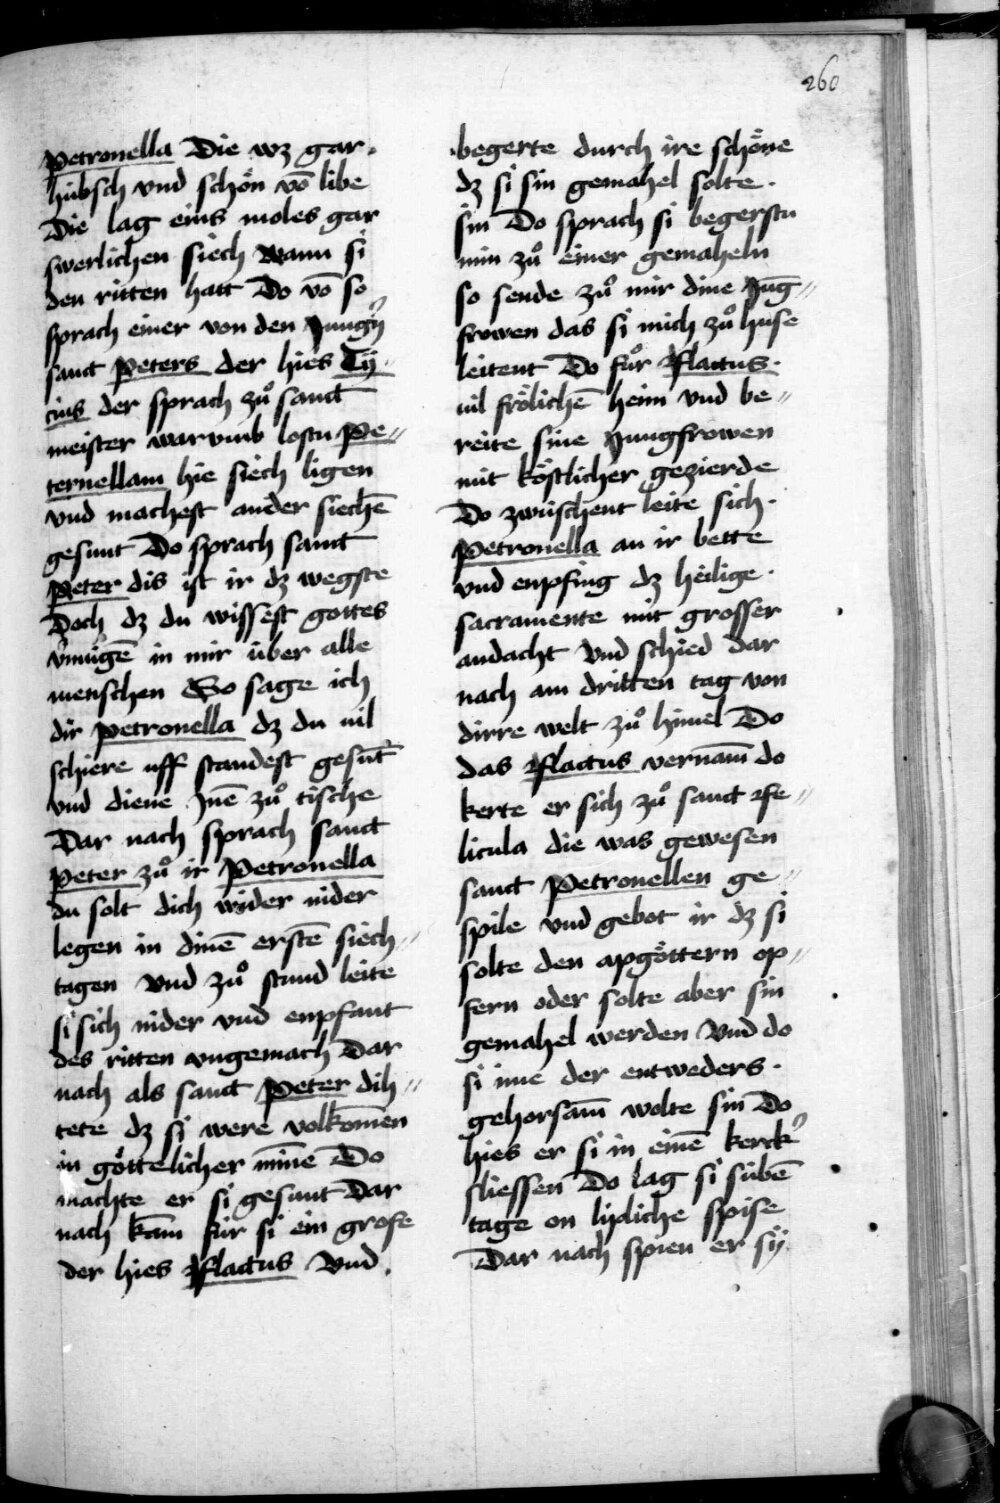 260
Petronella Die wz gar.
hübsch vnd schön vō libe
Die lag eins moles gar
swerlichen siech Wann si
den ritten hatt Do vō so
sprach einer von den Jungn̄
sanct Peters der hies Tÿ
cius der sprach zuͦ sanct
meister warvmb lostu Pe〃
ternellam hie siech ligen
vnd machest ander siechē
gesunt Do sprach sanct
Peter dis ist ir dz wegste
Doch dz du wissest gottes
v̓mügē in mir über alle
menschen So sage ich
dir petronella dz du vil
schiere uff standest gesūt
vnd diene Jnē zuͦ tische
Dar nach sprach sanct
Peter zuͦ ir Petronella
du solt dich wider nider
legen in dinē erstē siech〃
tagen Vnd zuͦ stund leite
si sich nider vnd enpfant
des ritten vngemach Dar
nach als sanct Peter dih〃
tete dz si were volkomēn
in göttelicher minne Do
machte er si gesunt Dar
nach kam für si ein grofe
der hies Flactus Vnd.
begerte durch ire schöne
dz si sin gemahel solte.
sin Do sprach si begerstu
min zuͦ einer gemaheln
so sende zuͦ mir dine Jūg〃
frowen das si mich zuͦ huse
leitent Do fuͦr Flactus.
vil frölichē heim vnd be〃
reite sine Jungfrowen
mit köstlicher gezierde
Do zwüschent leite sich.
Petronella an ir bette
vnd enpfing dz heilige.
sacramente mit grosser
andacht Vnd schied dar
nach am dritten tag von
dirre welt zuͦ himel Do
das Flactus vernam̄ do
kerte er sich zuͦ sanct Fe〃
licula die was gewesen
sanct Petronellen ge〃
spile vnd gebot ir dz si
solte den apgöttern op〃
fern oder solte aber sin
gemahel werden Vnd do
si ime der entweders.
gehorsam̄ wolte sin Do
hies er si in einē kerck̓
sliessen Do lag si sübē
tage on lipliche spise
Dar nach spien er sÿ